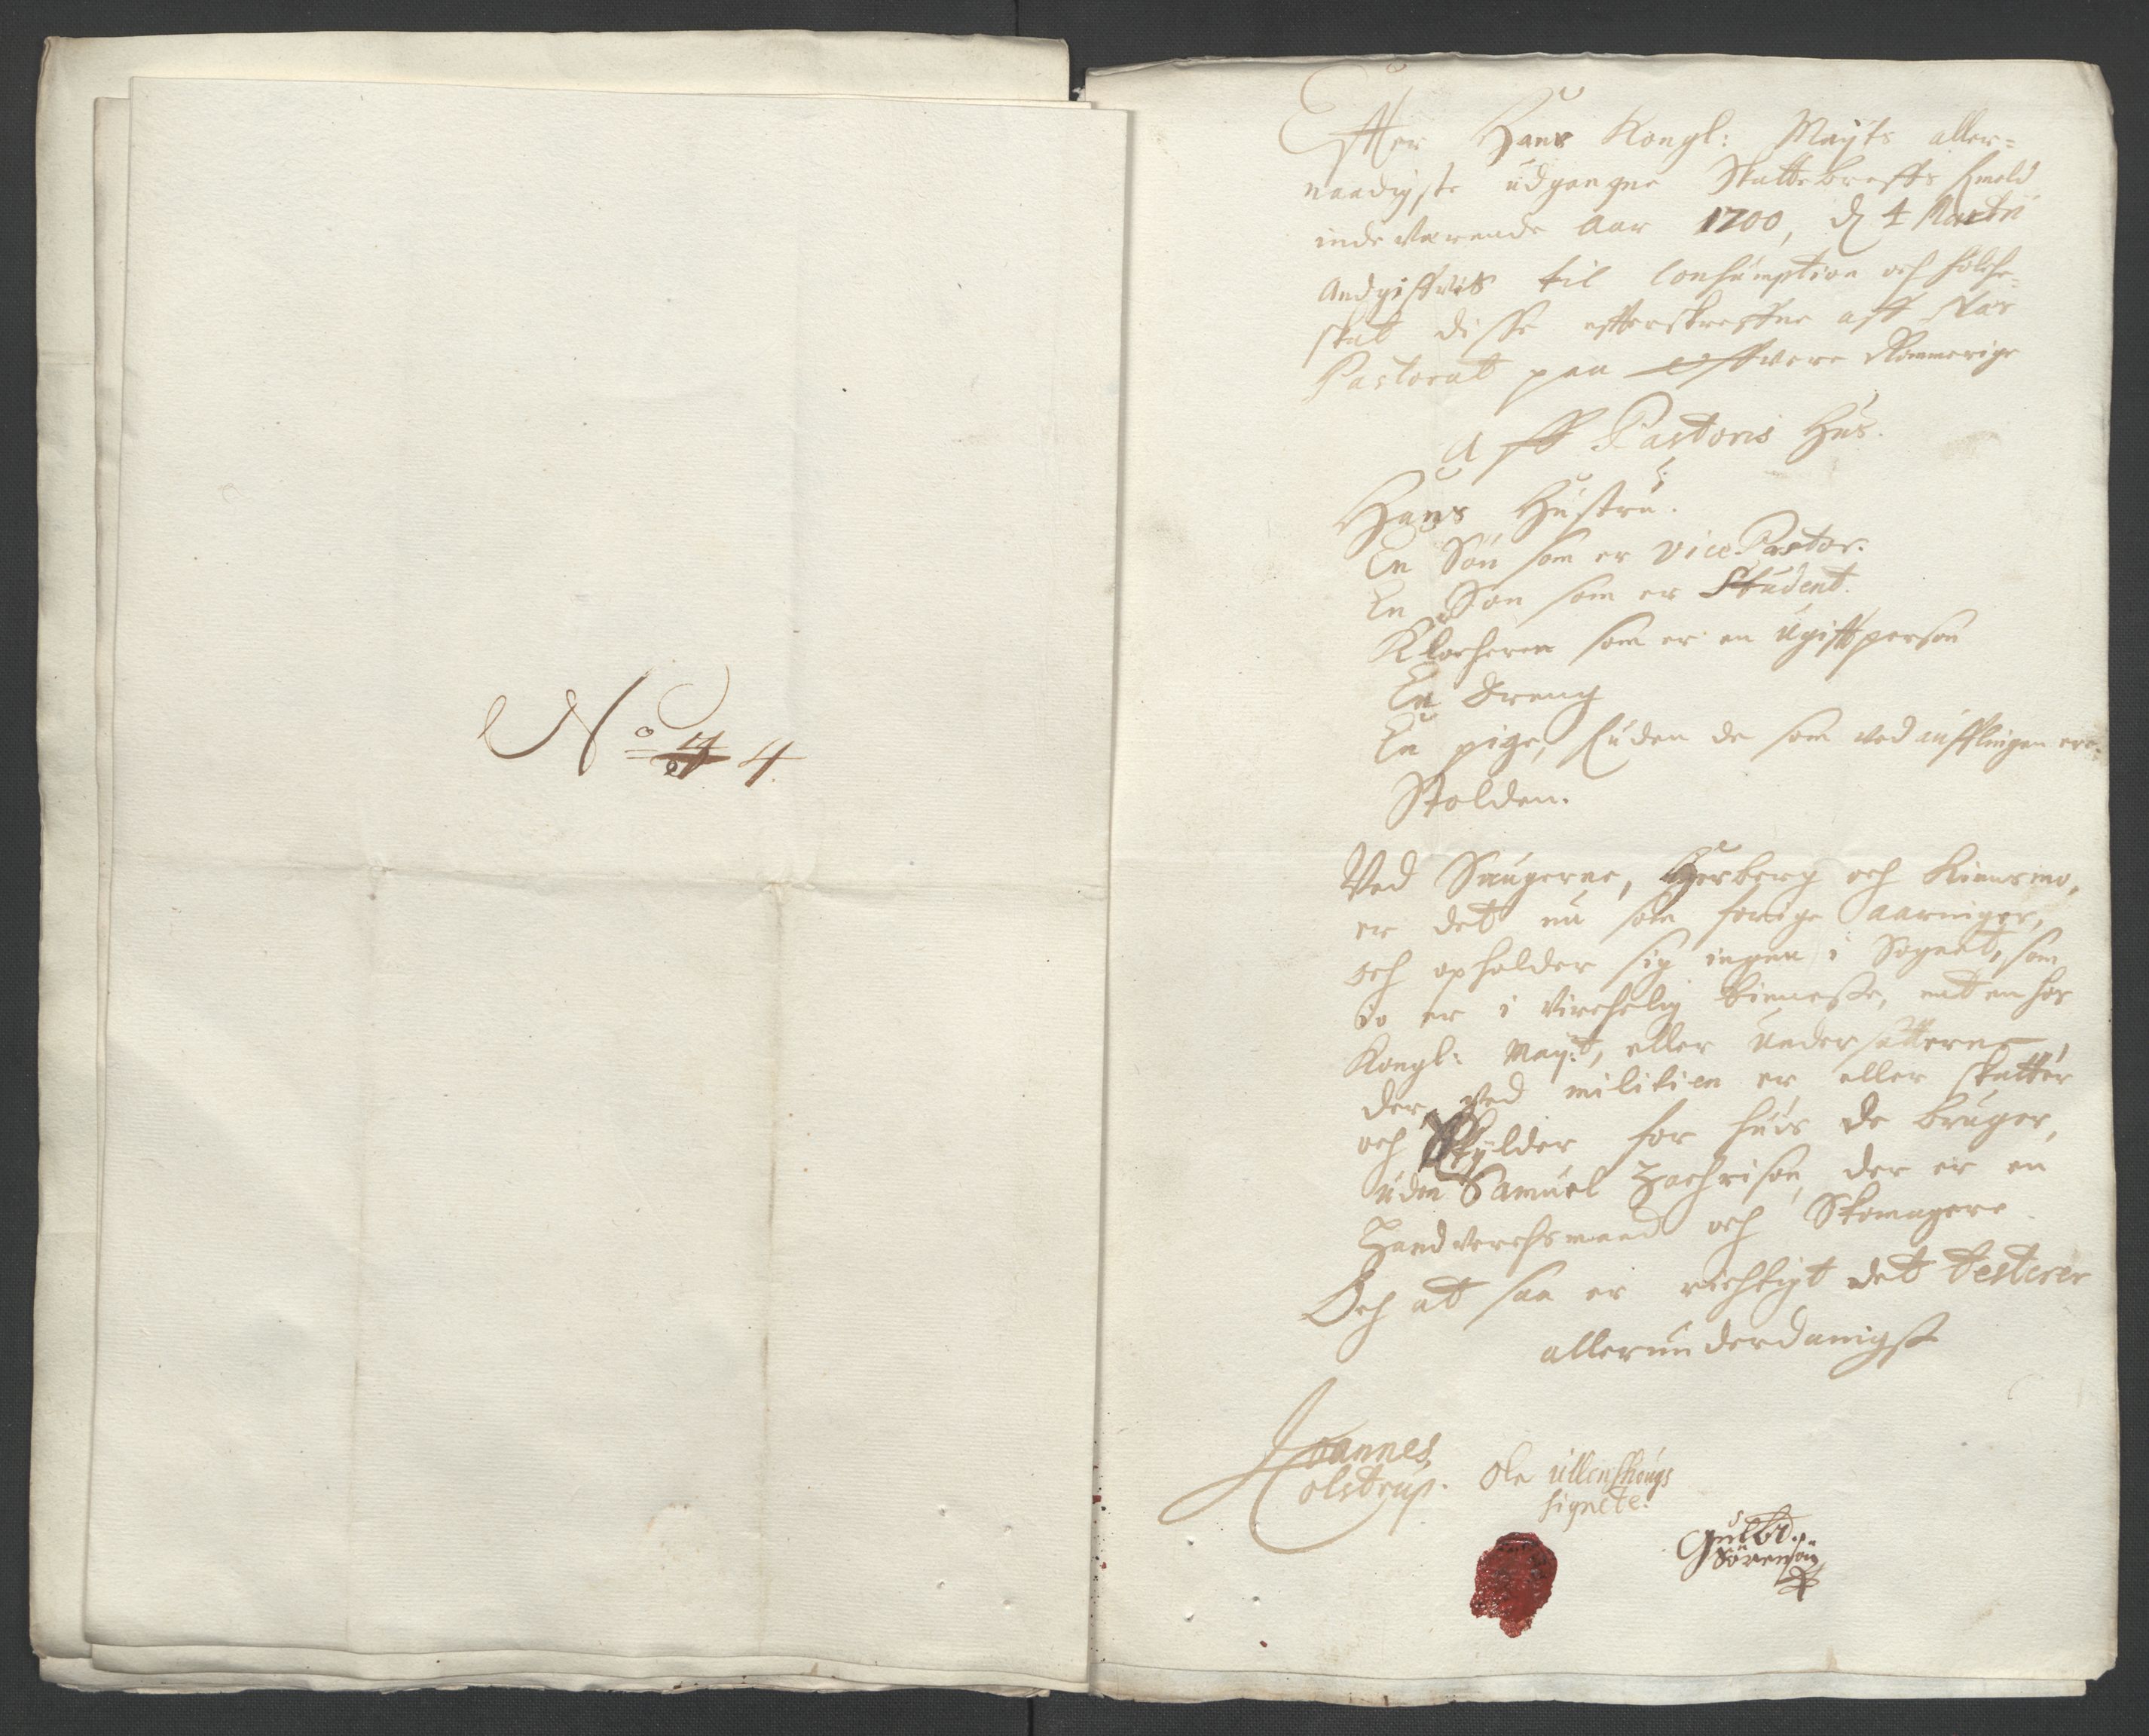 No 4 4.
Effter Hans Kongl: Mayts aller=
naadigste udgangne Skattebreffs
inde Værende Aar 1200, d 4 Martii
Andgiffves til Consumption och folche=
skat disse effterskrefne aff Næs
Pastorat paa Øffvere Rommerige
Aff Pastoris Hus.
Hans Hustru.
En Søn som er vice Pastor.
En Søn som er Student.
Klocheren som er en ugifft person
En Dreng
En pige, uden de som ved aufflingen ere
Stolden.
Ved Saugerne, Herberg och
er det nu som forige Aaringer,
och opholder sig ingen i Sognet, som
io er i Virchelig tieneste, enten hos
Kongl: May:t, eller undersatterne,
der ved militien er eller skatter
och skylder for huis de bruger,
uden Samuel Zachrisøn, der er en
Handverchsmand och Skomagere
Och at saa er richtigt det testerer
allerunderdanigst
Joannes
Colstrup.
Ole ullenshougs
signete.
Gulbr.
Sørensøn